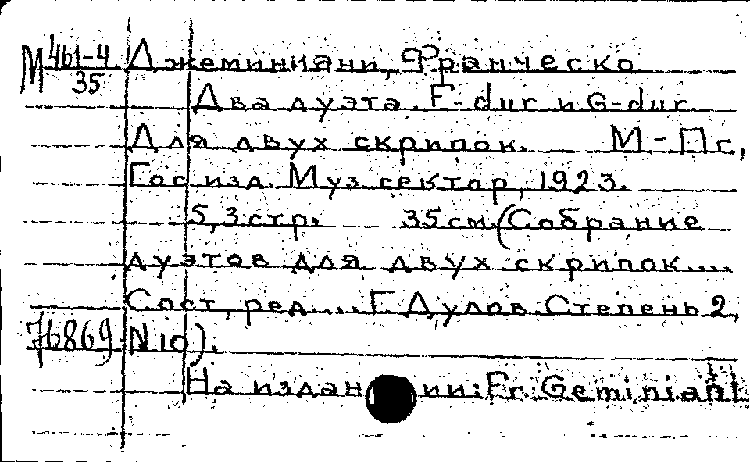 М 461-4/35 Джеминиани, Франческо
Два дуэта. F-dur и G-dur
Для двух скрипок. М-Пг,
Гос. изд. Муз сектор, 1923.
5, 3 стр. 35 см. (Собрание
дуэтов для двух скрипок....
Сост., ред.... Г. Дулов. Степень 2,
76869 N 10).
На издании: Fr. Geminiani